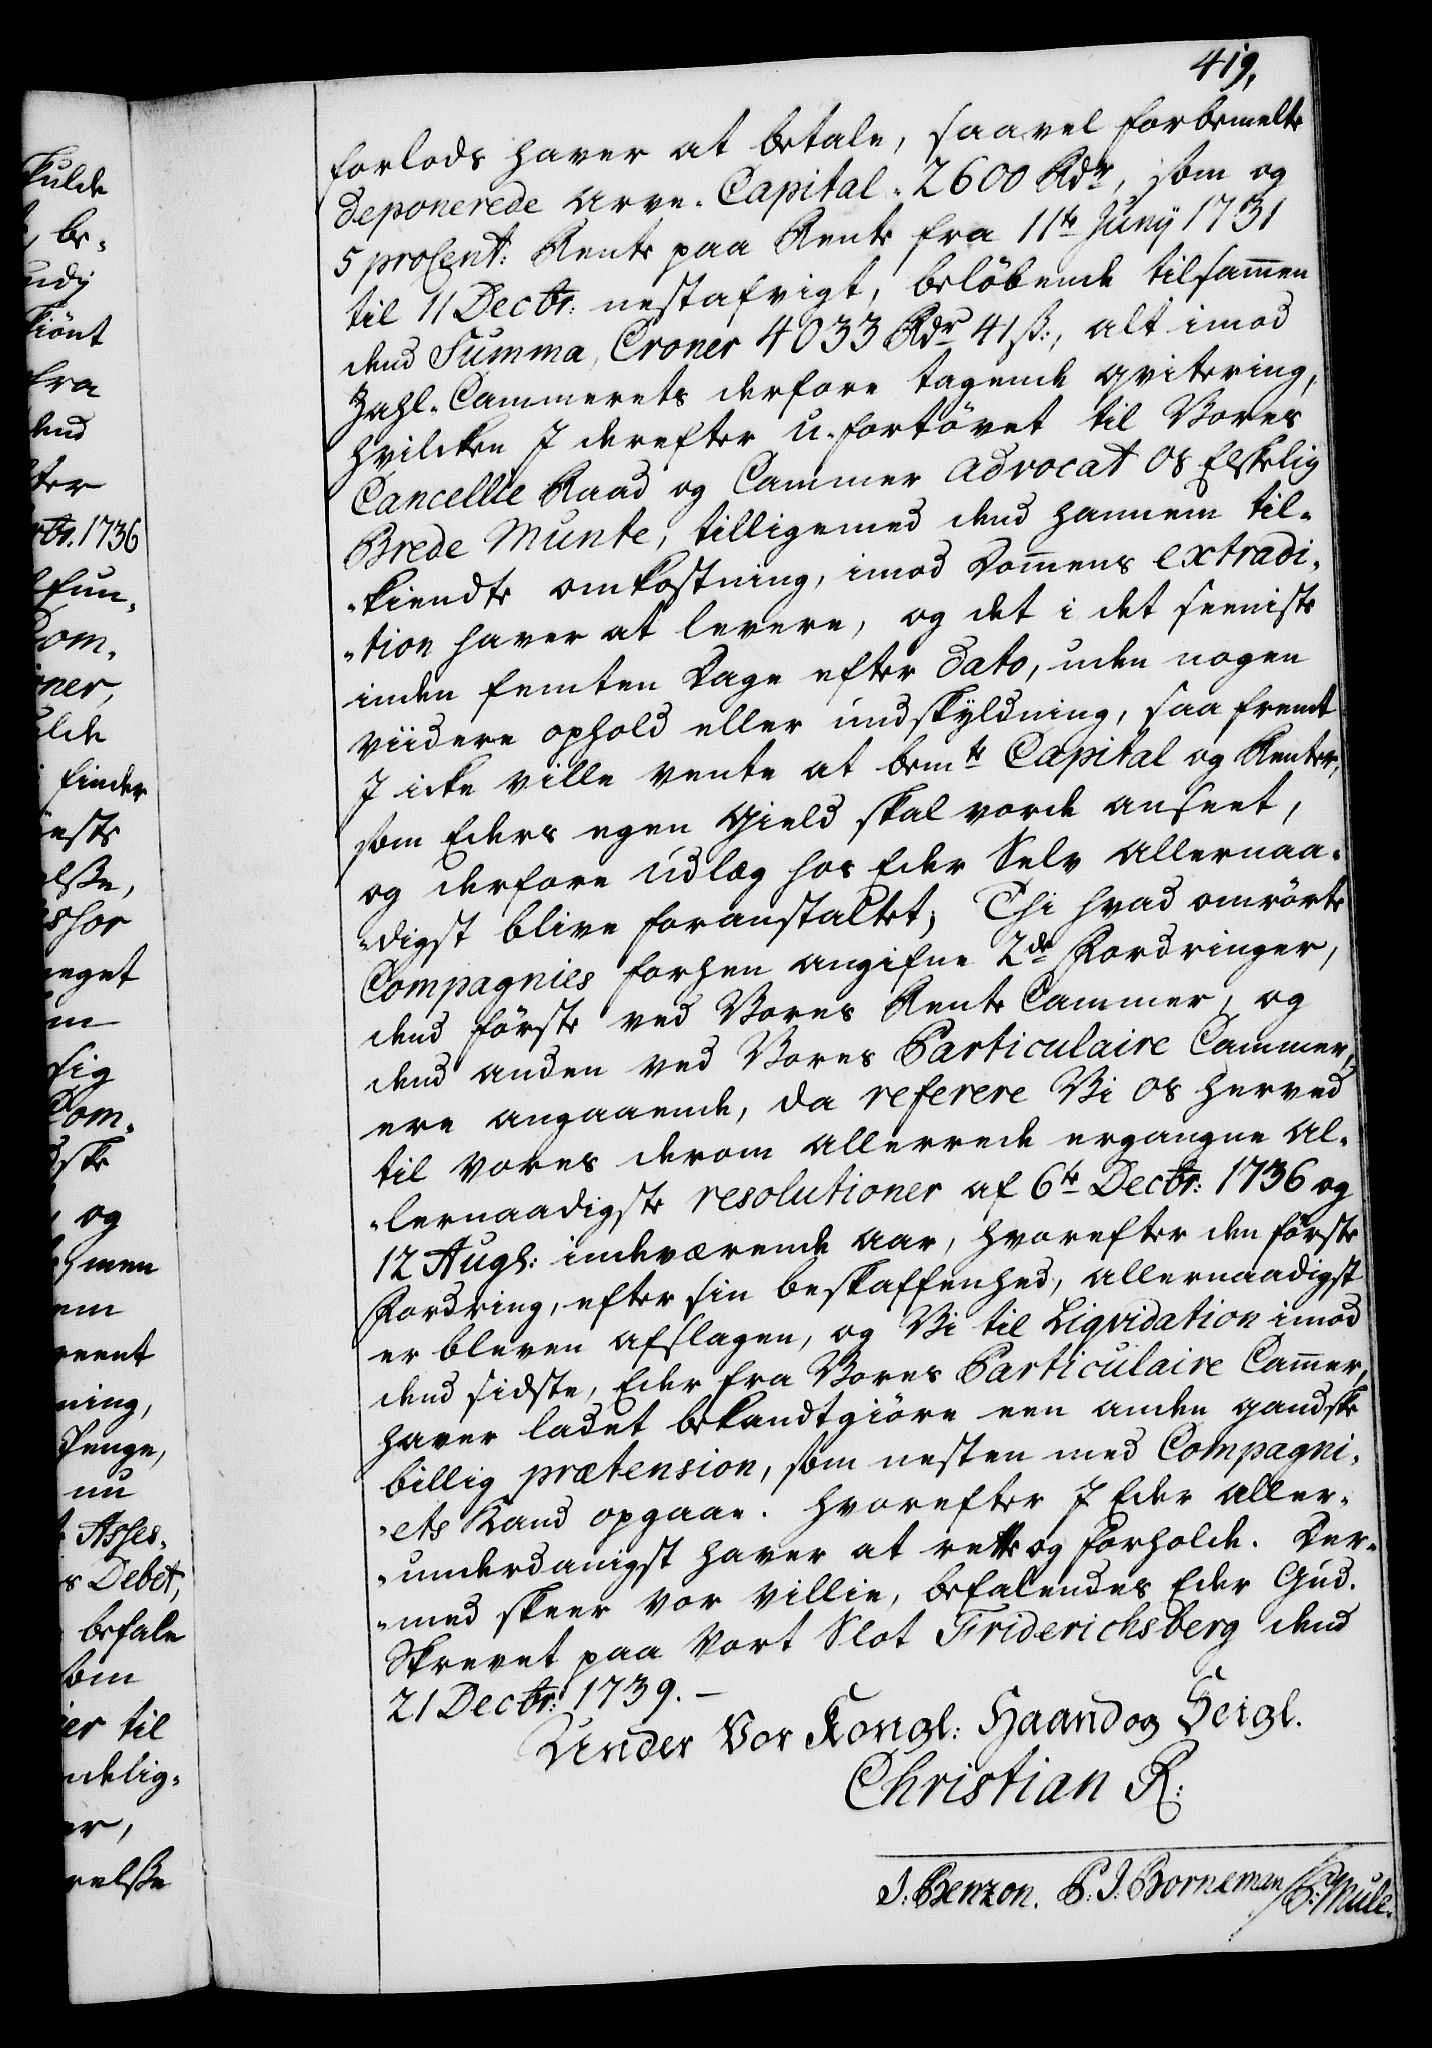 419,
forlods haver at betale, saavel forbemelte
deponerede Arve-Capital, 2600 Rdr, som og
5 proCent: Rente paa Rente fra 11te Junÿ 1731
til 11 Decbr: nestafvigt, beløbende tilsam̄en
dend Summa, Croner 4033 Rdr 41 ß:, alt imod
Zahl-Cammerets derfore tagende qvitering,
hvilcken I derefter u-fortøvet til Vores
Cancellie Raad og Cammer Advocat Os Elskelig
Brede Munte, tilligemed dend hannem til-
-kiendte omkostning, imod Dom̄ens extradi-
-tion haver at levere, og det i det seeniste
inden femten Dage efter Dato, uden nogen
viidere ophold eller undskÿldning, saa fremt
I icke ville vente at bemte Capital og Renter,
som Eders egen Gield skal vorde anseet,
og derfore Udlæg hos Eder Selv Allernaa-
-digst blive foranstaltet; Thi hvad omrørte
Compagnies forhen angifne 2de Fordringer,
dend første ved Vores Rente Cammer, og
dend anden ved Vores Particulaire Cammer,
ere angaaende, da referere Vi Os herved
til Vores derom allerrede ergangne Al-
-lernaadigste resolutioner af 6te Decbr: 1736 og
12 Augs: indeværende Aar, hvorefter den første
Fordring, efter sin beskaffenhed, allernaadigst
er bleven afslagen, og Vi til Liqvidation imod
dend sidste, Eder fra Vores Particulaire Cam̄er,
haver ladet bekandtgiöre een anden gandske
billig prætension, som nesten med Compagni-
-ets Kand opgaae. Hvorefter I Eder aller-
-underdanigst haver at rette og forholde. Der-
-med skeer Vor Villie, befalendes Eder Gud.
Skrevet paa Vort Slot Friderichsberg dend
21 Decbr: 1739. –
Under Vor Kongl: Haand og Seigl.
Christian R:
J: Benzon. P. J: Borneman / P: Mule.